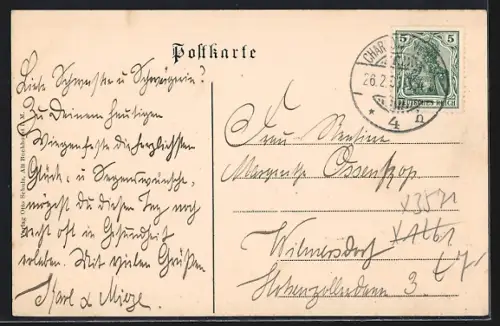 Postkarte
Liebe Schwester u Schwägerin!
Zu Deinem heutigen
Wiegenfeste die herzlichsten
Glück- u Segenswünsche,
mögest Du diesen Tag noch
recht oft in Gesundheit
erleben. Mit vielen Grüßen
Karl u Mieze.
Verlag Otto Schulz, Alt Buchhorst i. M.
5 5
DEUTSCHES REICH
CHAR
26.2.
4 n
Frau Rentiere
Margarethe Ossenkop
Wilmersdorf
Hohenzollerndamm 3